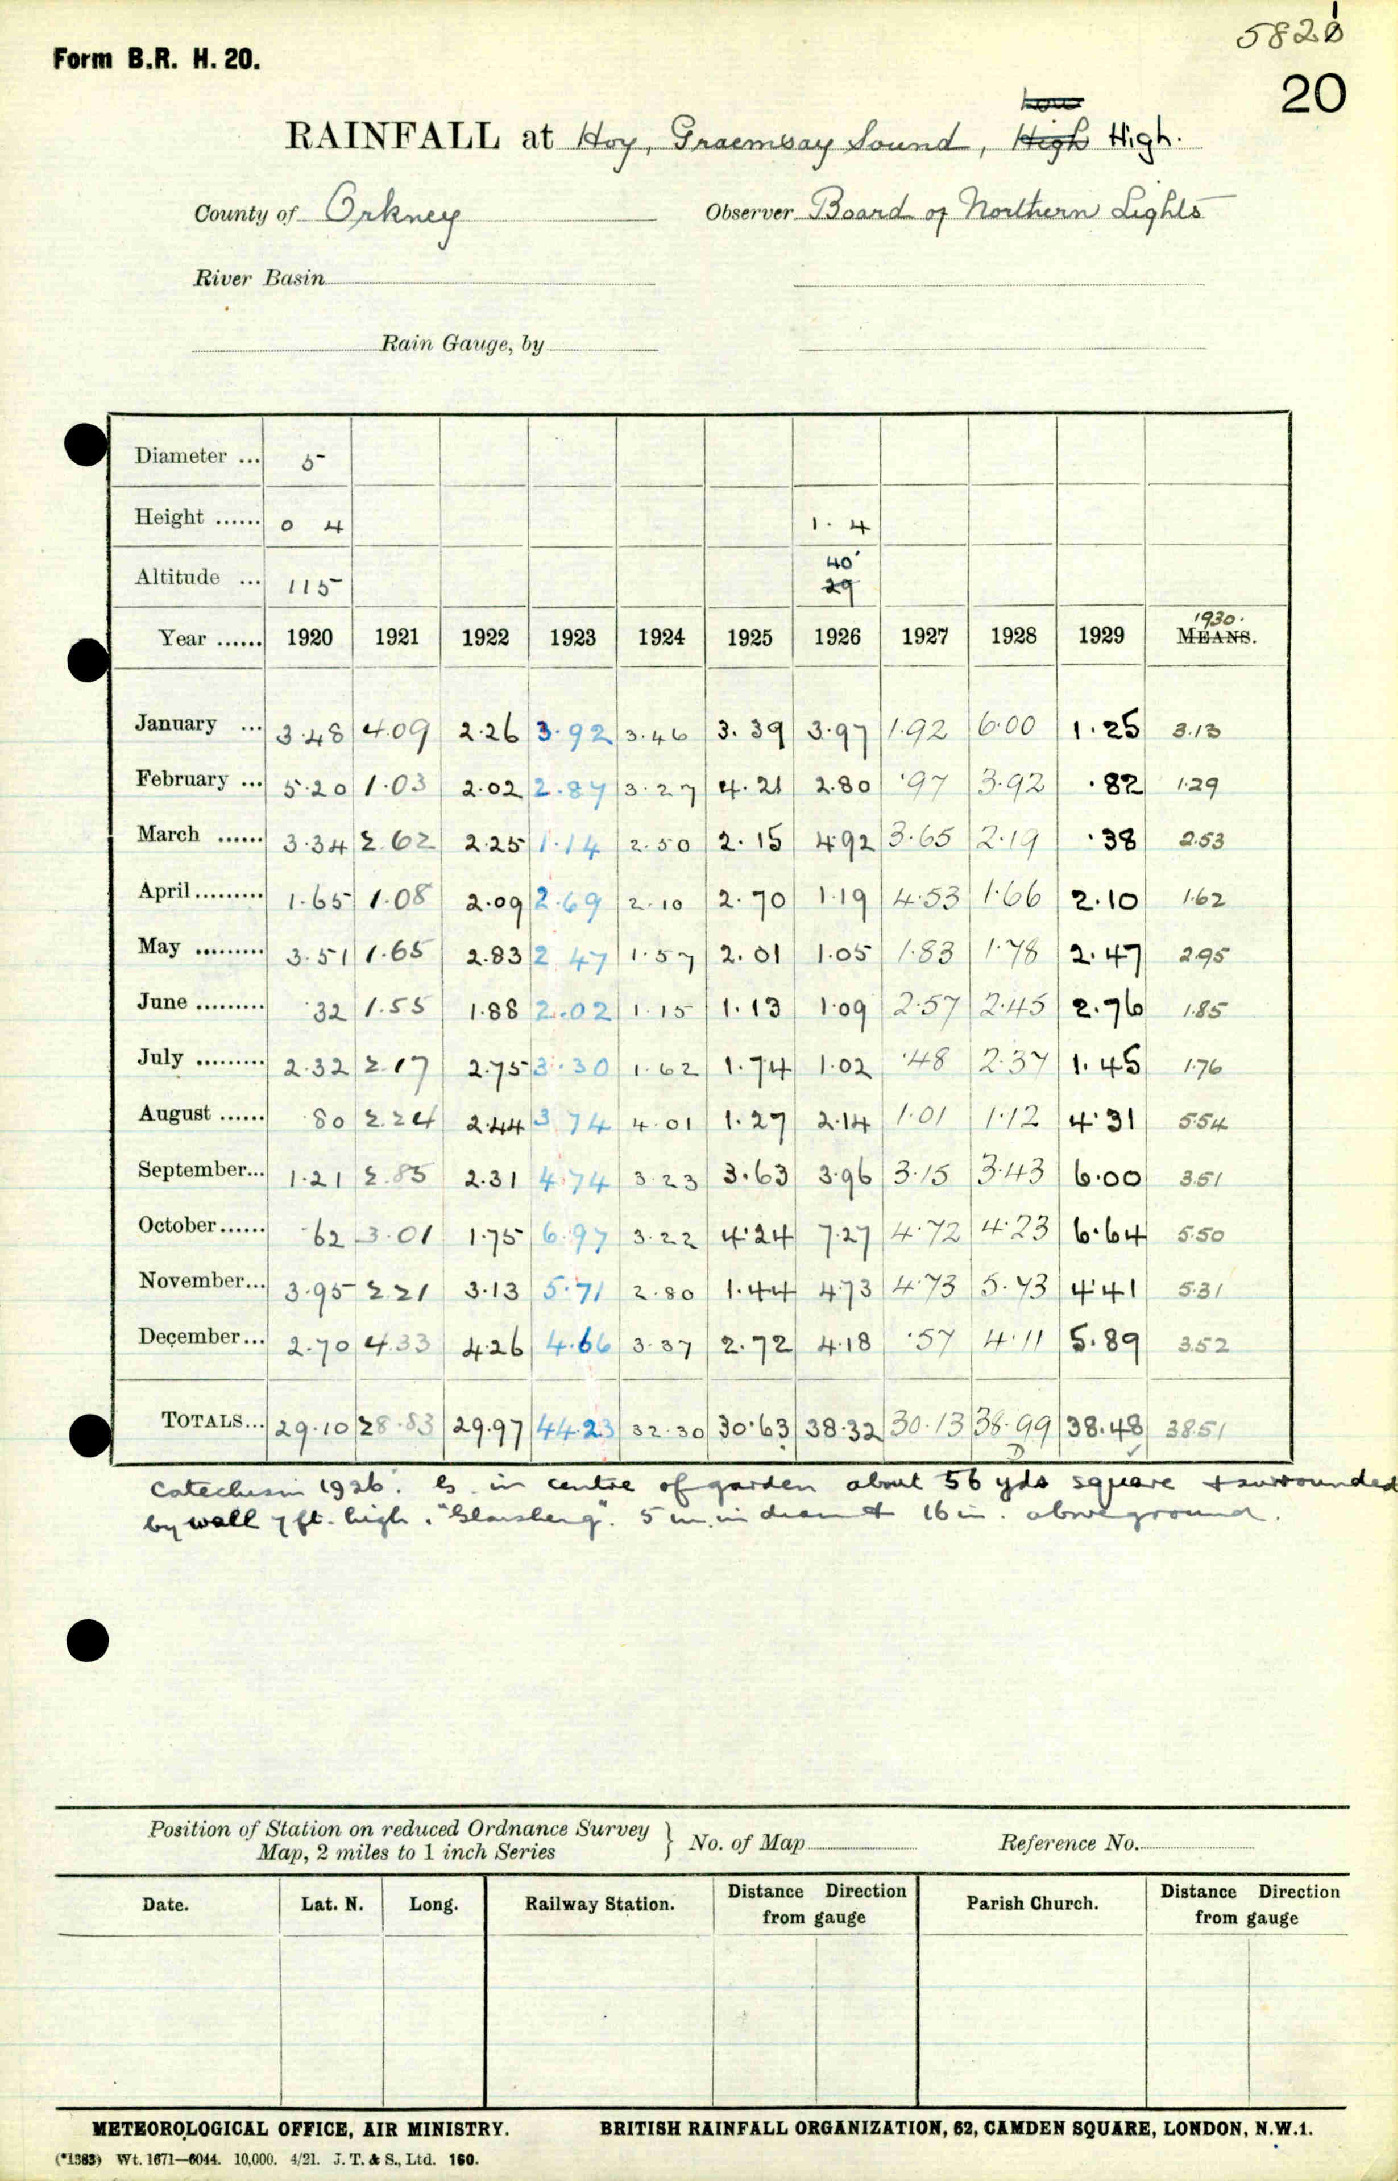 5821
Form B.R. H. 20.
20
Low
RAINFALL at Hoy, Graemsay Sound, High High.
County of Orkney Observer Board of Northern Lights
River Basin
Rain Gauge, by
Diameter ... 5
Height ...... 0 4 1. 4
40'
Altitude ... 115 29
1930.
Year ...... 1920 1921 1922 1923 1924 1925 1926 1927 1928 1929 MEANS.
January ... 3.48 4.09 2.26 3.92 3.46 3.39 3.97 1.92 6.00 1.25 3.13
February ... 5.20 1.03 2.02 2.87 3.27 4.21 2.80 .97 3.92 .82 1.29
March ...... 3.34 2.62 2.25 1.14 2.50 2.15 4.92 3.65 2.19 .38 2.53
April......... 1.65 1.08 2.09 2.69 2.10 2.70 1.19 4.53 1.66 2.10 1.62
May ......... 3.51 1.65 2.83 2.47 1.57 2.01 1.05 1.83 1.78 2.47 2.95
June ......... .32 1.55 1.88 2.02 1.15 1.13 1.09 2.57 2.45 2.76 1.85
July ......... 2.32 2.17 2.75 3.30 1.62 1.74 1.02 .48 2.37 1.45 1.76
August ...... .80 2.24 2.44 3.74 4.01 1.27 2.14 1.01 1.12 4.31 5.54
September... 1.21 2.85 2.31 4.74 3.23 3.63 3.96 3.15 3.43 6.00 3.51
October...... .62 3.01 1.75 6.97 3.22 4.24 7.27 4.72 4.23 6.64 5.50
November... 3.95 2.21 3.13 5.71 2.80 1.44 4.73 4.73 5.73 4.41 5.31
December... 2.70 4.33 4.26 4.66 3.37 2.72 4.18 .57 4.11 5.89 3.52
TOTALS... 29.10 28.83 29.97 44.23 32.30 30.63 38.32 30.13 38.99 38.48 38.51
Catechism 1926. Is in centre of garden about 56 yds square + surrounded
by wall 7 ft. high. 5 in. in diam & 16 in. above ground.
Position of Station on reduced Ordnance Survey
Map, 2 miles to 1 inch Series } No. of Map Reference No.
Date. Lat. N. Long. Railway Station. Distance Direction from gauge Parish Church. Distance Direction from gauge
METEOROLOGICAL OFFICE, AIR MINISTRY. BRITISH RAINFALL ORGANIZATION, 62, CAMDEN SQUARE, LONDON, N.W.1.
(*1383) Wt. 1671—6044. 10,000. 4/21. J. T. & S., Ltd. 160.